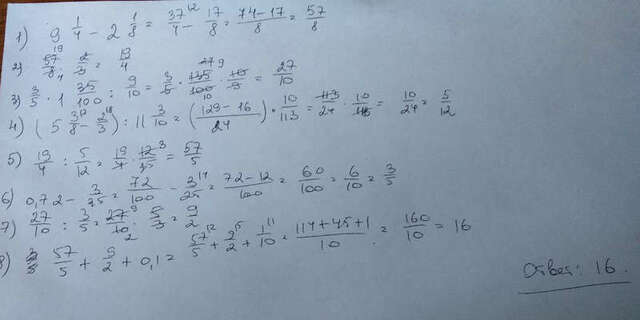 1) 9 1/4 - 2 1/8 = 37/4 - 17/8 = 74-17/8 = 57/8
2) 57/8 · 2/3 = 19/4
3) 3/5 · 1 35/100 : 9/10 = 3/5 · 135/100 · 10/9 = 27/10
4) (5 3/8 - 2/3) : 11 3/10 = (129-16/24) · 10/113 = 113/24 · 10/113 = 10/24 = 5/12
5) 19/4 : 5/12 = 19/4 · 12/5 = 57/5
6) 0,72 - 3/25 = 72/100 - 3/25 = 72-12/100 = 60/100 = 6/10 = 3/5
7) 27/10 : 3/5 = 27/10 · 5/3 = 9/2
8) 57/5 + 9/2 + 0,1 = 57/5 + 9/2 + 1/10 = 114+45+1/10 = 160/10 = 16
Ответ: 16.